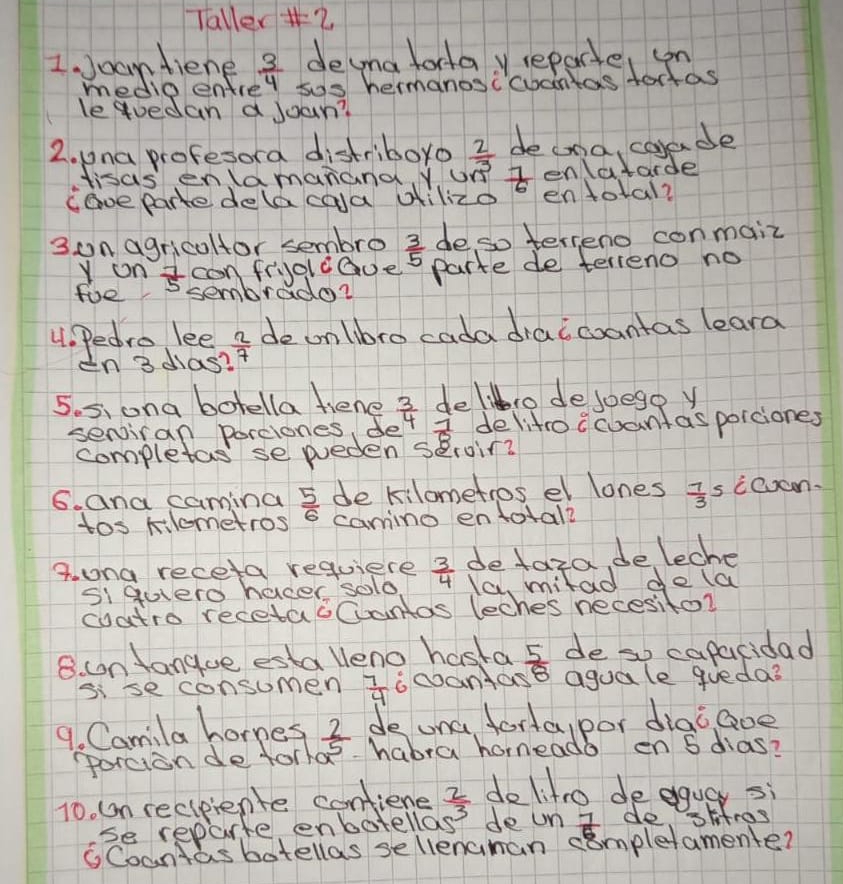 Taller #2
1. Joan tiene 3/4 de una torta y reparte, un
medio entre sus hermanos ¿cuantas tortas
le quedan a Joan?
2. una profesora distriboyo 2/3 de una, caja de
tisas en la mañana y un 1/6 en la tarde
¿Que parte de la caja utilizo en total?
3 un agricoltor sembro 3/5 de so terreno con maiz
y un 1/5 con frijol ¿Que parte de terreno no
foe sembrado?
4. Pedro lee 2/7 de un libro cada dia ¿coantas leara
en 3 dias?
5. si una botella tiene 3/4 de litro de joego y
serviran porciones, de 1/8 de litro ¿cuantas porciones
completas se pueden servir?
6. ana camina 5/6 de kilometros el lones 1/3 s ¿cuan-
tos kilometros camino en total?
7. una receta requiere 3/4 de taza de leche
si quiero hacer solo la mitad de la
cuatro receta ¿Cuantas leches necesito?
8. un tanque esta lleno hasta 5/8 de su capacidad
si se consumen 1/4 ¿coantas agua le queda?
9. Camila hornes 2/5 de una torta, por dia ¿Que
porcion de torta habra horneado en 5 dias?
10. Un recipiente contiene 2/3 de litro de agua si
se reparte en botellas de un 1/8 de
¿Coantas botellas se completamente?